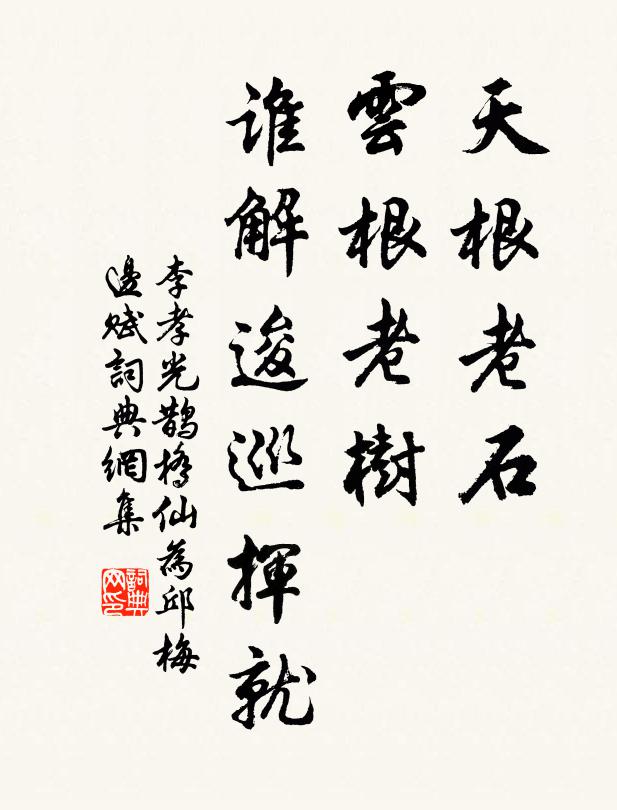 天根老石
雲根老樹
誰解逡巡揮就
李孝光鵲橋仙為邱梅
邊賦詞典網集
詞典網印